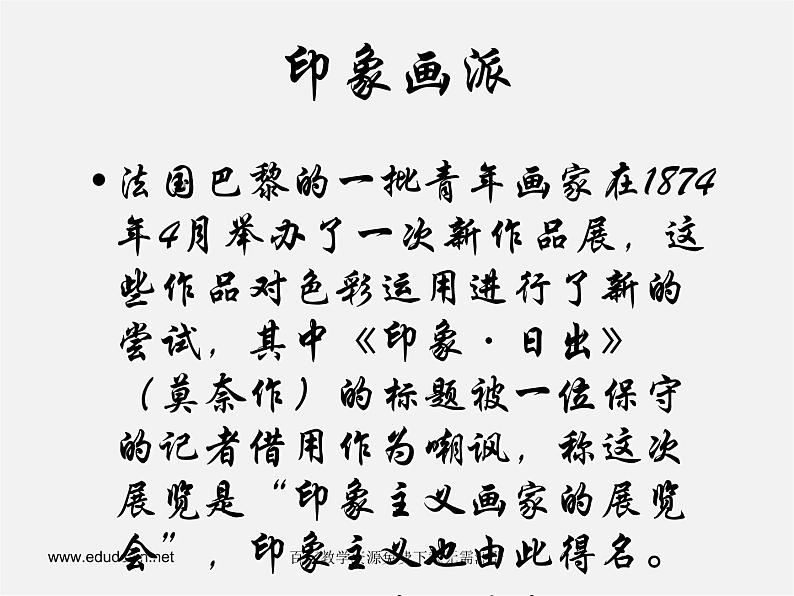 印象画派
• 法国巴黎的一批青年画家在1874
年4月举办了一次新作品展，这
些作品对色彩运用进行了新的
尝试，其中《印象·日出》
（莫奈作）的标题被一位保守
的记者借用作为嘲讽，称这次
展览是“印象主义画家的展览
会”，印象主义也由此得名。